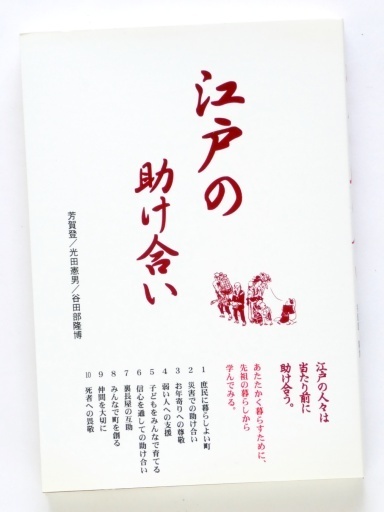 江戸の
助け合い
芳賀登/光田憲男/谷田部隆博
江戸の人々は
当たり前に
助け合う。
あたたかく暮らすために、
先祖の暮らしから
学んでみる。
1 庶民に暮らしよい町
2 災害での助け合い
3 お年寄りへの尊敬
4 弱い人への支援
5 子どもをみんなで育てる
6 信心を通しての助け合い
7 裏長屋の互助
8 みんなで町を創る
9 仲間を大切に
10 死者への畏敬